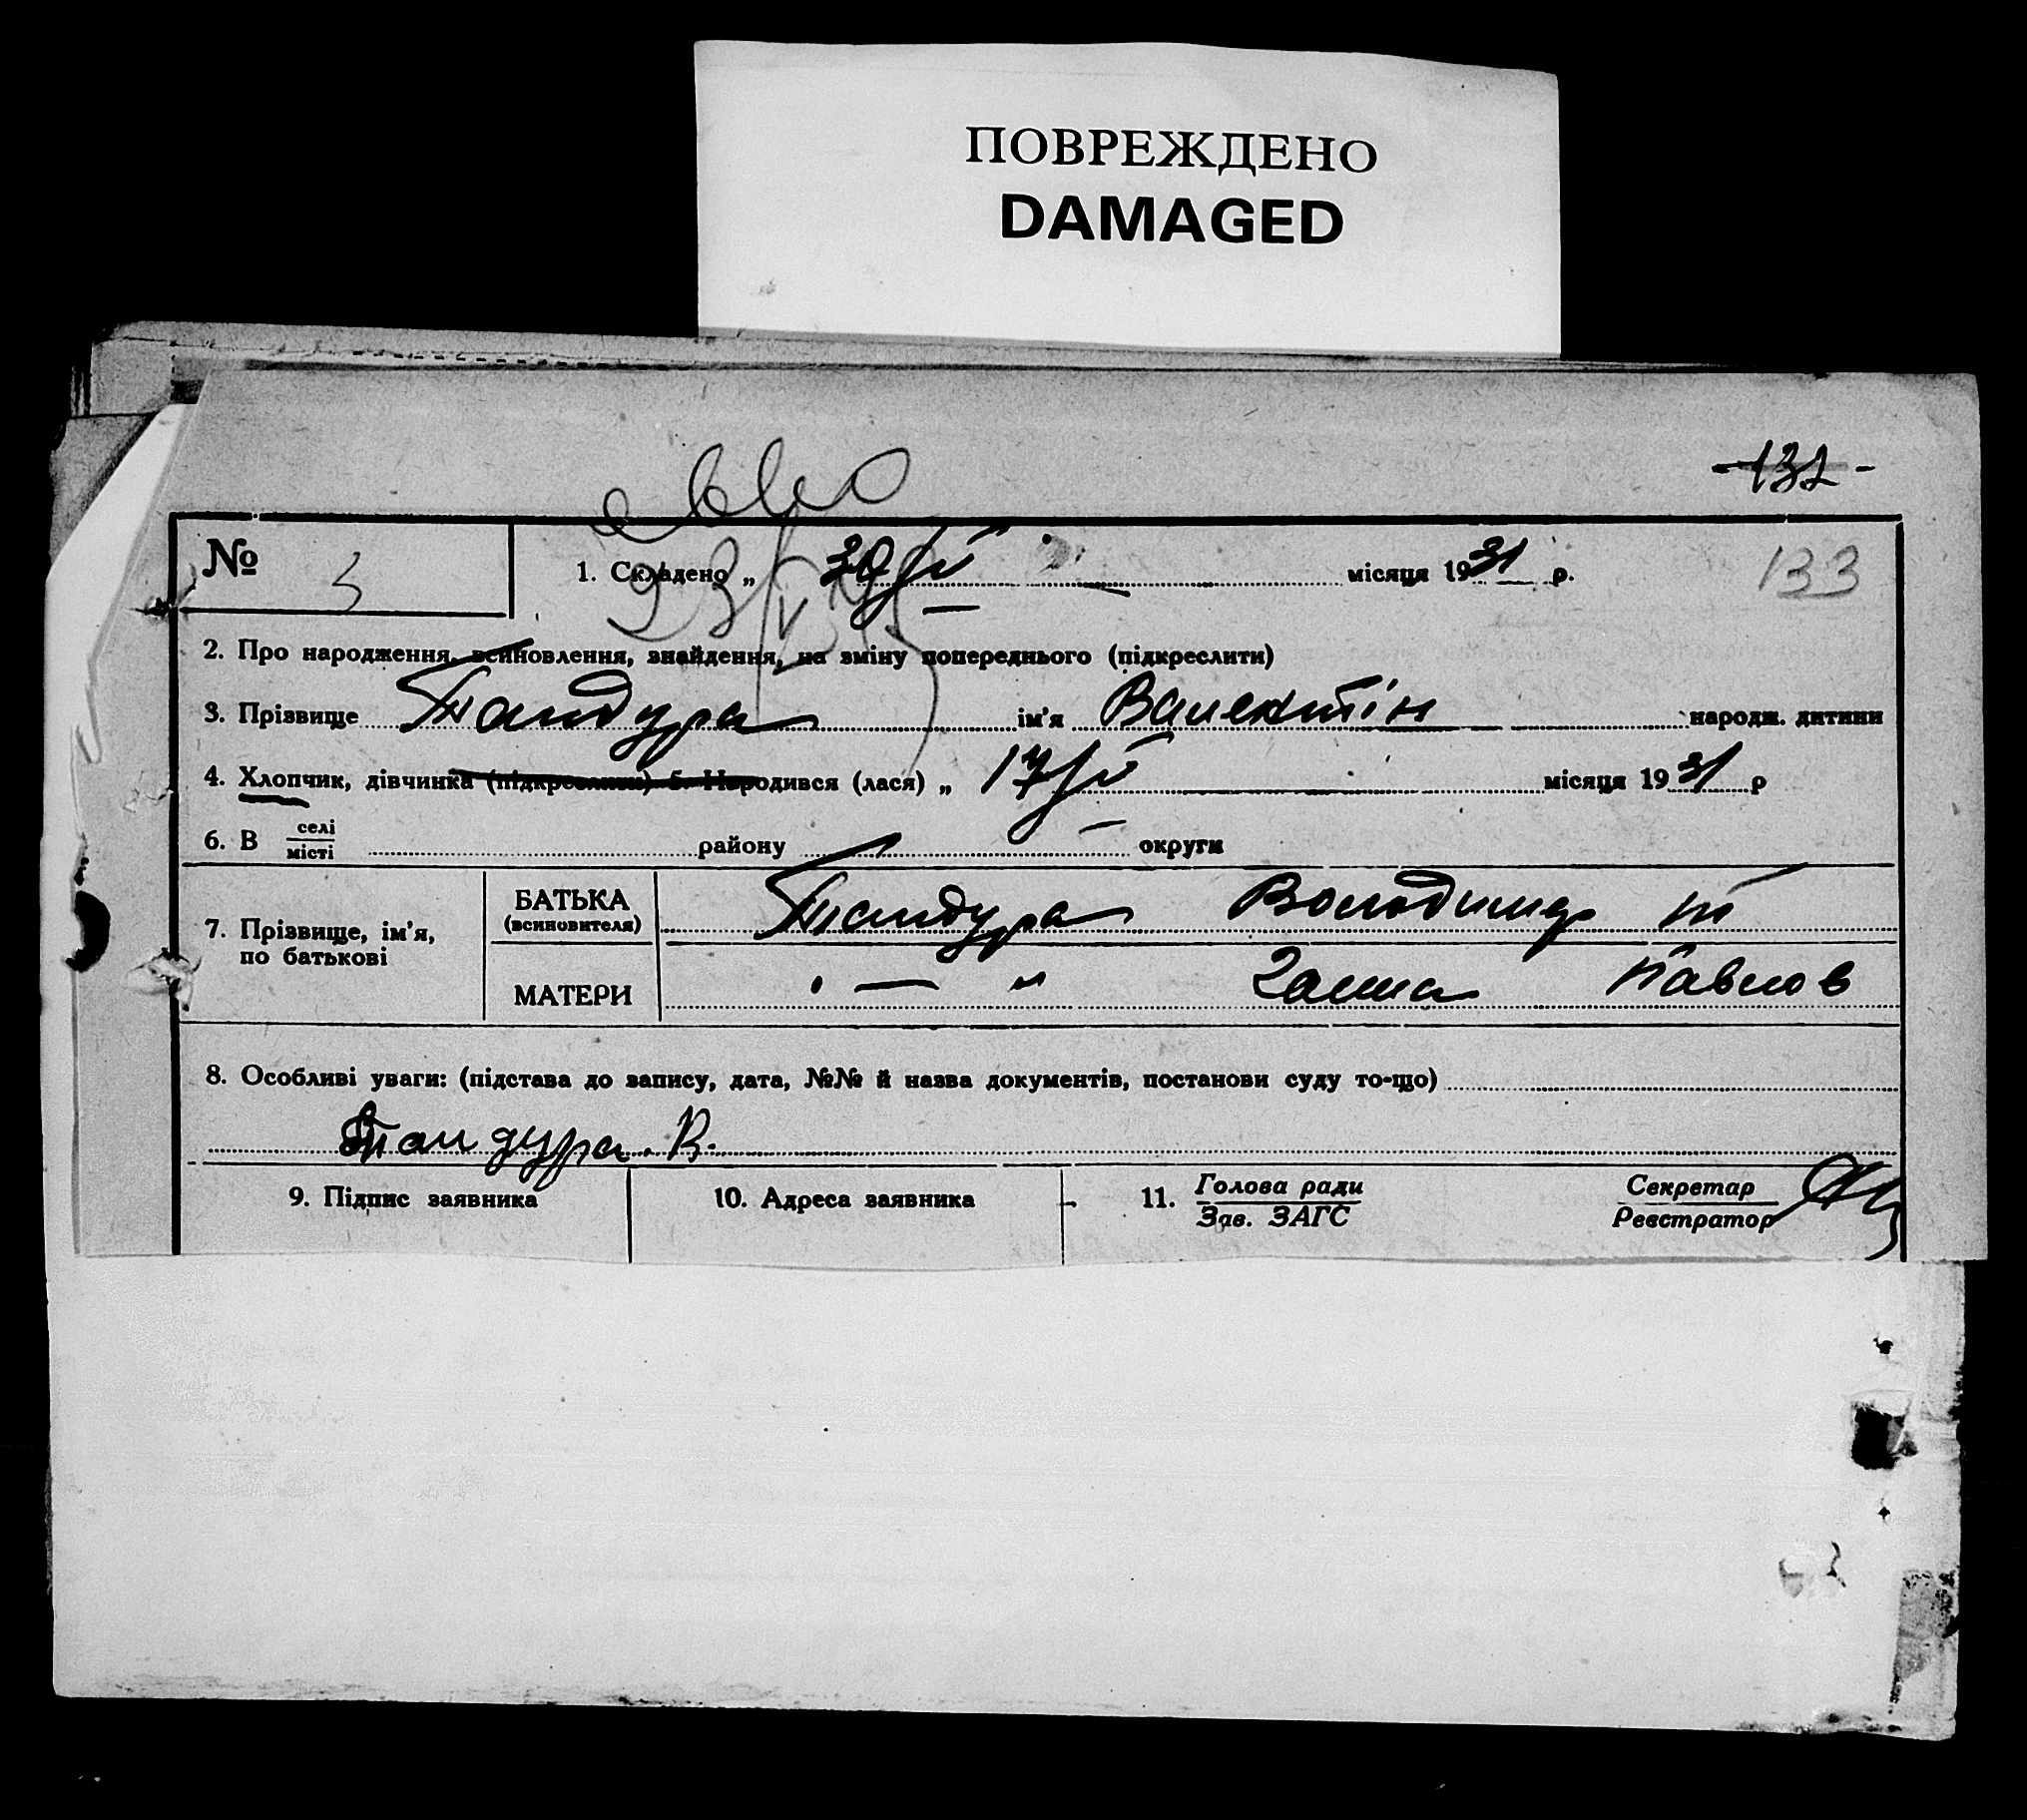 ПОВРЕЖДЕНО
DAMAGED
-132-
133
№ 3
1. Складено „ 30/IV місяця 1931 р.
2. Про народження, всиновлення, знайдення, на зміну попереднього (підкреслити)
3. Прізвище Тандура ім'я Валентін народж. дитини
4. Хлопчик, дівчинка (підкреслити) 5. Народився (лася) „ 17/IV місяця 1931 р
6. В селі місті району округи
7. Прізвище, ім'я, по батькові
БАТЬКА (всиновителя) Тандура Володимир Т
МАТЕРИ · — „ Галина Павлов
8. Особливі уваги: (підстава до запису, дата, №№ й назва документів, постанови суду то-що)
Тандура. В.
9. Підпис заявника 10. Адреса заявника 11. Голова ради Зав. ЗАГС Секретар Реєстратор